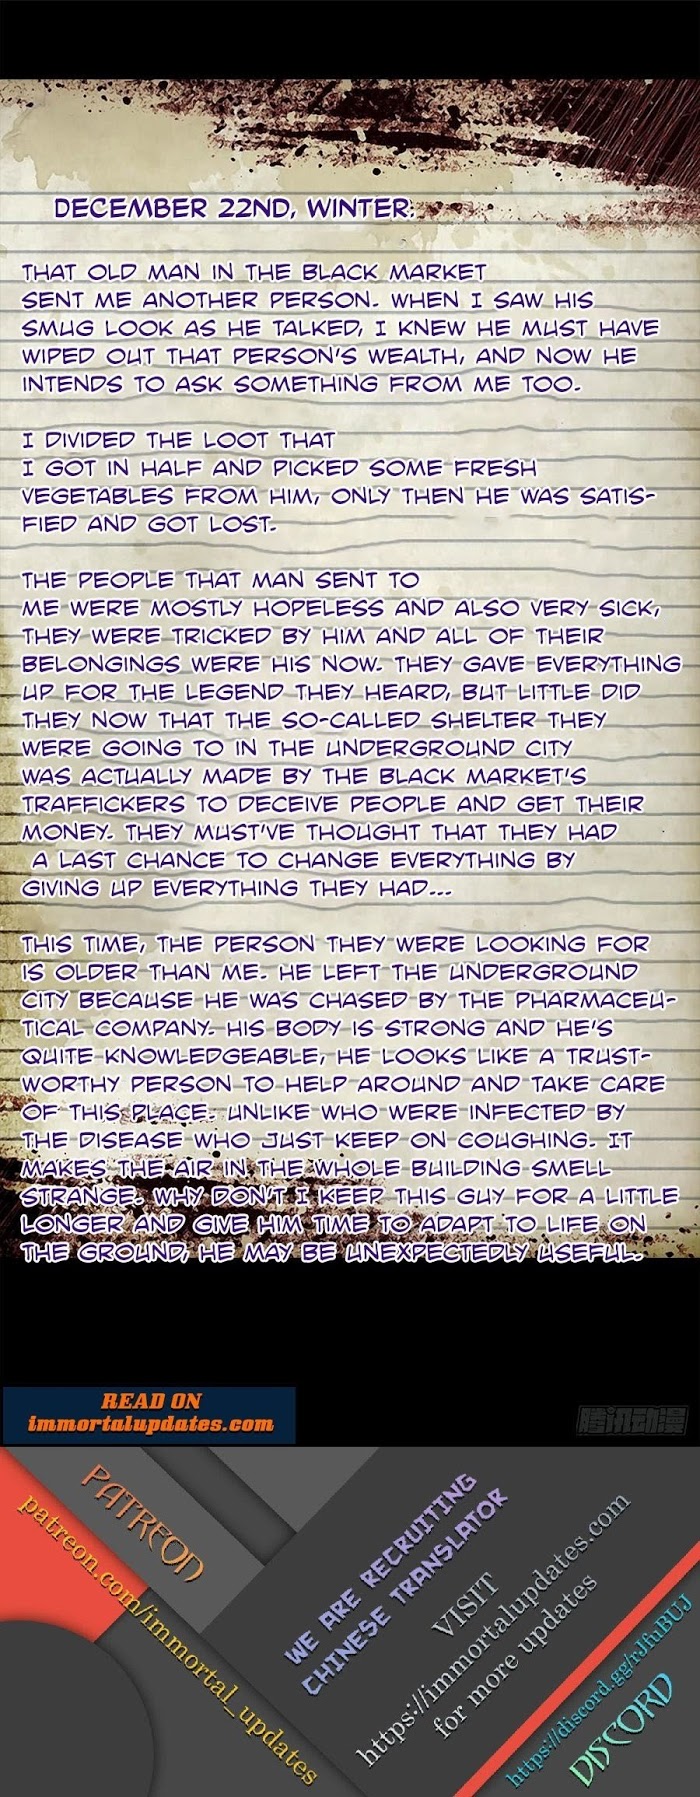 DECEMBER 22ND, WINTER:
THAT OLD MAN IN THE BLACK MARKET
SENT ME ANOTHER PERSON. WHEN I SAW HIS
SMUG LOOK AS HE TALKED, I KNEW HE MUST HAVE
WIPED OUT THAT PERSON'S WEALTH, AND NOW HE
INTENDS TO ASK SOMETHING FROM ME TOO.
I DIVIDED THE LOOT THAT
I GOT IN HALF AND PICKED SOME FRESH
VEGETABLES FROM HIM, ONLY THEN HE WAS SATIS-
FIED AND GOT LOST.
THE PEOPLE THAT MAN SENT TO
ME WERE MOSTLY HOPELESS AND ALSO VERY SICK,
THEY WERE TRICKED BY HIM AND ALL OF THEIR
BELONGINGS WERE HIS NOW. THEY GAVE EVERYTHING
UP FOR THE LEGEND THEY HEARD, BUT LITTLE DID
THEY NOW THAT THE SO-CALLED SHELTER THEY
WERE GOING TO IN THE UNDERGROUND CITY
WAS ACTUALLY MADE BY THE BLACK MARKET'S
TRAFFICKERS TO DECEIVE PEOPLE AND GET THEIR
MONEY. THEY MUST'VE THOUGHT THAT THEY HAD
A LAST CHANCE TO CHANGE EVERYTHING BY
GIVING UP EVERYTHING THEY HAD...
THIS TIME, THE PERSON THEY WERE LOOKING FOR
IS OLDER THAN ME. HE LEFT THE UNDERGROUND
CITY BECAUSE HE WAS CHASED BY THE PHARMACEU-
TICAL COMPANY. HIS BODY IS STRONG AND HE'S
QUITE KNOWLEDGEABLE, HE LOOKS LIKE A TRUST-
WORTHY PERSON TO HELP AROUND AND TAKE CARE
OF THIS PLACE. UNLIKE WHO WERE INFECTED BY
THE DISEASE WHO JUST KEEP ON COUGHING. IT
MAKES THE AIR IN THE WHOLE BUILDING SMELL
STRANGE. WHY DON'T I KEEP THIS GUY FOR A LITTLE
LONGER AND GIVE HIM TIME TO ADAPT TO LIFE ON
THE GROUND, HE MAY BE UNEXPECTEDLY USEFUL.
READ ON
immortalupdates.com
腾讯动漫
PATREON
patreon.com/immortal_updates
WE ARE RECRUITING
CHINESE TRANSLATOR
VISIT
https://immortalupdates.com
for more updates
https://discord.gg/rJfuBUJ
DISCORD